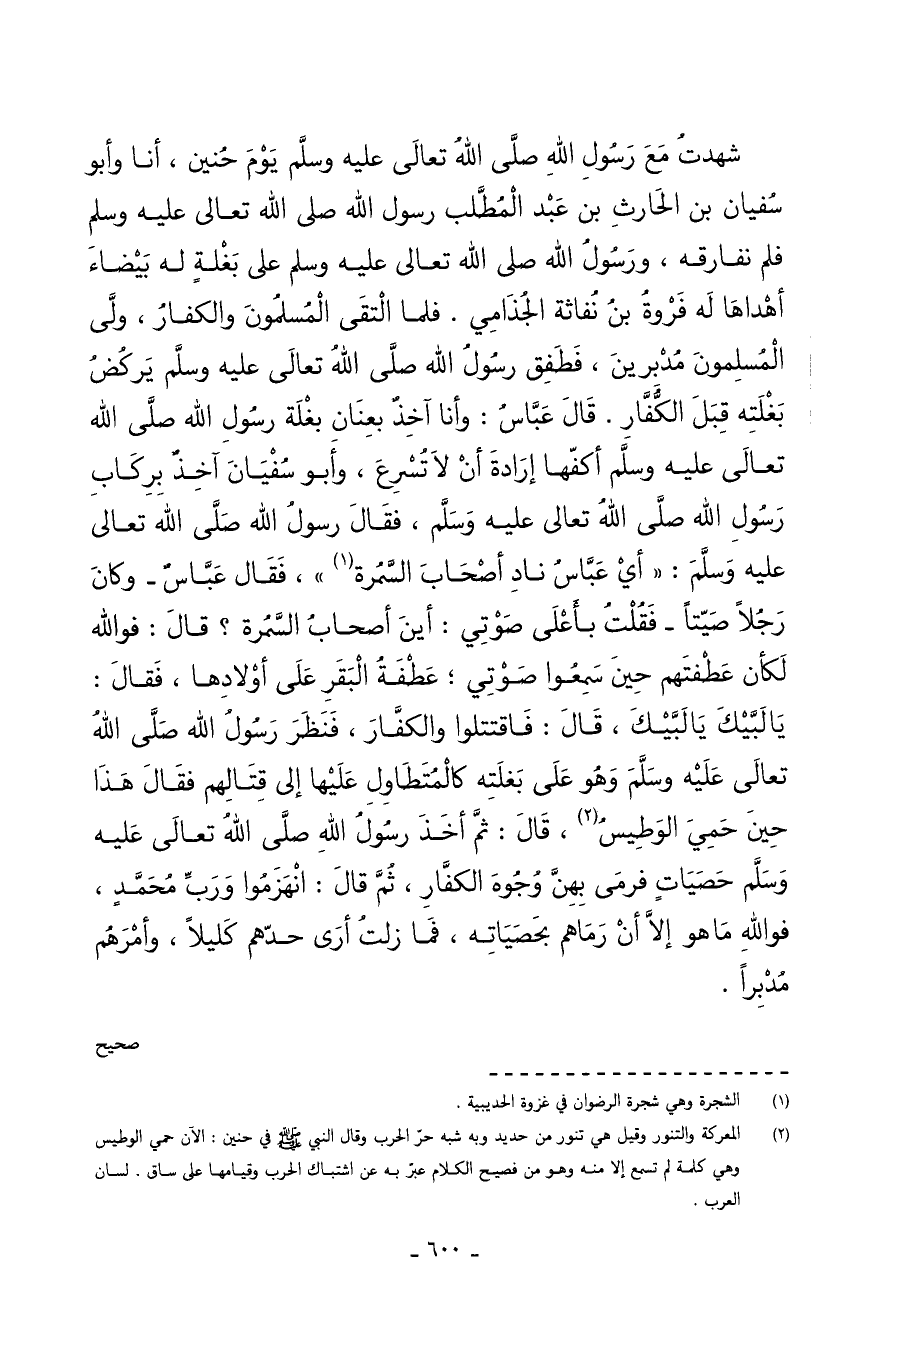 شهدتُ مَعَ رَسُولِ اللهِ صلَّى اللهُ تعالَى عليه وسلَّم يَوْمَ حُنين ، أنـا وأبو
سُفيان بن الحَارثِ بن عَبْد الْمُطَّلب رسول الله صلى الله تعـالى عليـه وسلم
فلم نفـارقـه ، ورَسُولُ الله صلى الله تعـالى عليـه وسلم على بَغْلـةٍ لـه بَيْضـاءَ
أهْداهَا لَه فَرْوةُ بنُ نُفاثة الجُذَامِي . فلمـا الْتقَى الْمُسلمُونَ والكفـارُ ، ولَّى
الْمُسلِمونَ مُدْبِرينَ ، فَطَفِق رسُولُ الله صلَّى اللهُ تعالَى عليه وسلَّم يَركُضُ
بَغْلَتِه قِبَلَ الكُفَّارِ . قَالَ عَبَّاسُ : وأنا آخِذٌ بعِنَانِ بغْلَة رسُولِ الله صلَّى الله
تعـالَى عليـه وسلَّم أكفّهـا إرَادةَ أنْ لاَ تُسْرِعَ ، وأبـو سُفْيَانَ آخِـذٌ بِرِكَابِ
رَسُولِ الله صلَّى اللهُ تعالى عليـه وَسَلَّم ، فقَـالَ رسولُ الله صَلَّى الله تعـالى
عليه وَسلَّمَ : « أيْ عَبَّاسُ نـادِ أصْحَـابَ السَّمُرة(١) » ، فَقَـال عَبَّـاسٌ ـ وكانَ
رَجُلاً صَيّتاً ـ فَقُلْتُ بـأَعْلَى صَوْتِي : أينَ أصحـابُ السَّمُرة ؟ قـالَ : فوالله
لَكأن عَطْفتَهم حِينَ سَمِعُـوا صَـوْتِي ؛ عَطْفَـةُ الْبَقَرِ عَلَى أوْلادِهـا ، فَقـالَ :
يَالَبَّيْكَ يَالَبَّيْـكَ ، قَـالَ : فَـاقتتلوا والكفَّـارَ ، فَنَظَرَ رَسُولُ الله صَلَّى اللهُ
تعالَى عَلَيْه وسَلَّمَ وَهُو عَلَى بَغلَتِه كالْمُتَطَاولِ عَلَيْها إلى قِتَـالِهِم فقَـالَ هَـذَا
حِينَ حَمِيَ الوَطِيسُ(٢) ، قَالَ : ثمَّ أخَـذَ رسُولُ اللهِ صلَّى اللهُ تعـالَى عَليـه
وَسَلَّم حَصَيَاتٍ فرمَى بِهِنَّ وُجُوهَ الكفَّارِ ، ثُمَّ قالَ : انْهَزَمُوا وَرَبِّ مُحَمَّـدٍ ،
فواللهِ مَاهو إلاَّ أنْ رَمَاهم بحَصَيَاتِـه ، فَمـا زلتُ أرَى حـدّهم كَليلاً ، وأمْرَهُم
مُدْبِراً .
صحيح
(١) الشجرة وهي شجرة الرضوان في غزوة الحديبية .
(٢) المعركة والتنور وقيل هي تنور من حديد وبه شبه حرّ الحرب وقال النبي ﷺ في حنين : الآن حمي الوطيس
وهي كلمـة لم تسمع إلا منـه وهـو من فصيح الكـلام عبّر بـه عن اشتبـاك الحرب وقيـامهـا على سـاق . لسـان
العرب .
ـ ٦٠٠ ـ